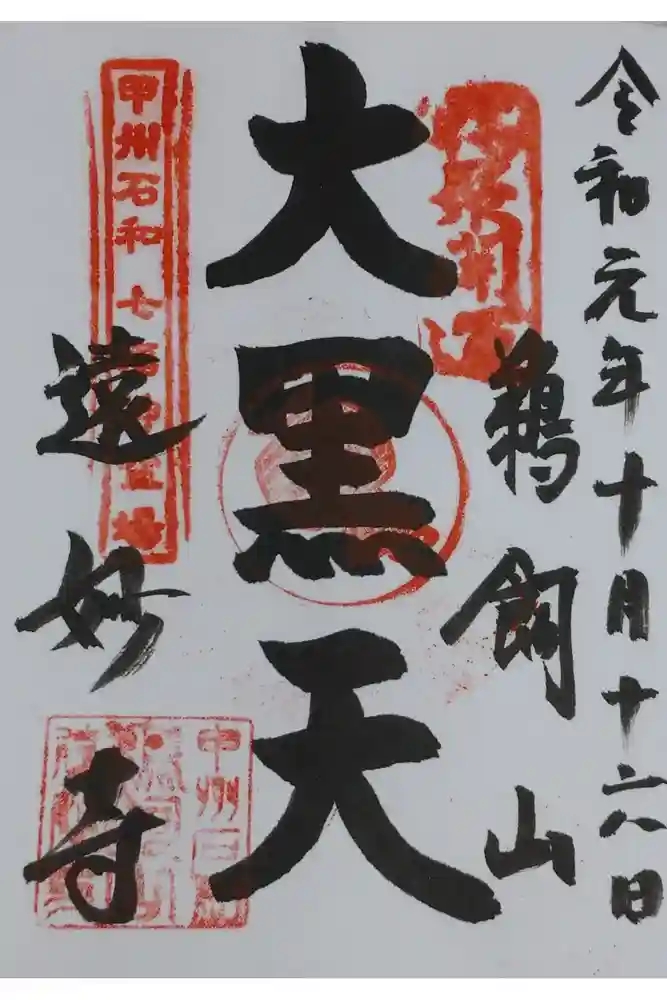 令和元年十月十六日
鵜飼山
大黒天
甲州石和七福神霊場
遠妙寺
甲州石和